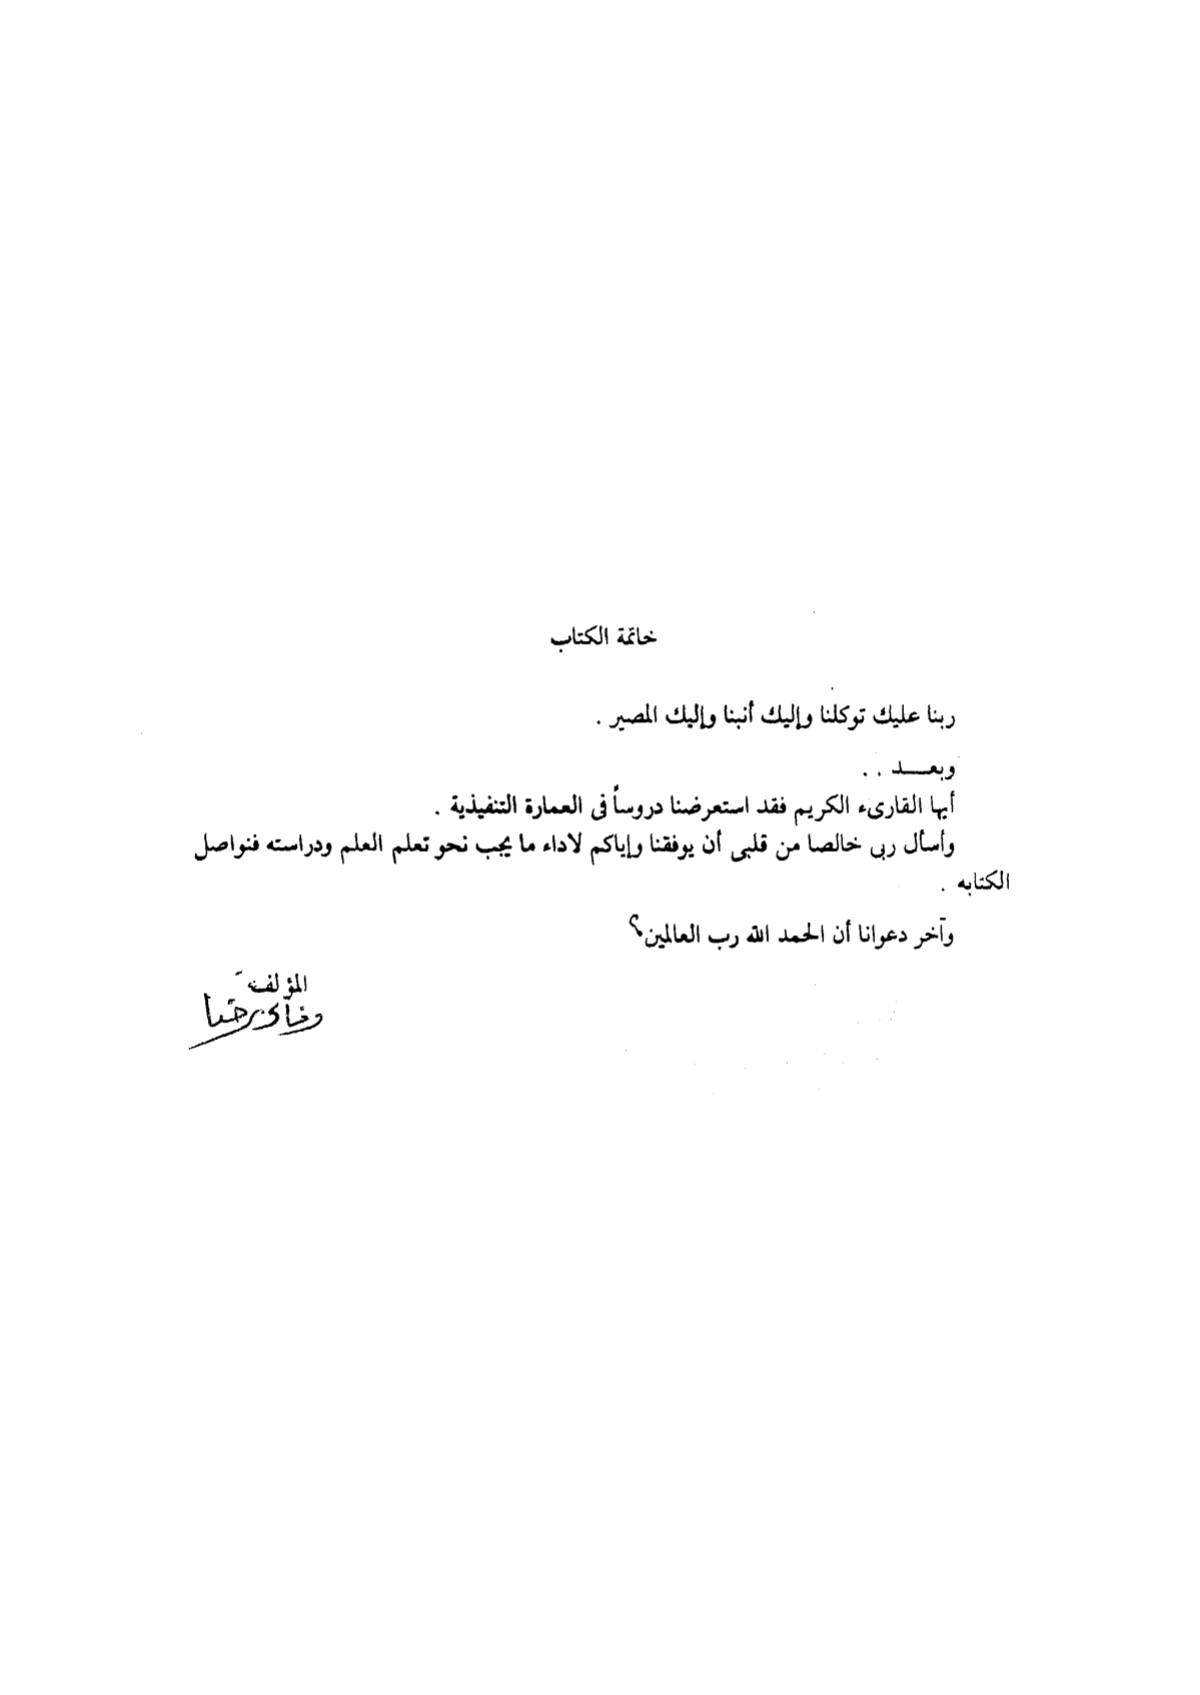 خاتمة الكتاب
ربنا عليك توكلنا وإليك أنبنا وإليك المصير .
وبعـــد . .
أيها القارىء الكريم فقد استعرضنا دروساً فى العمارة التنفيذية .
وأسأل ربى خالصا من قلبى أن يوفقنا وإياكم لاداء ما يجب نحو تعلم العلم ودراسته فنواصل
الكتابه .
وآخر دعوانا أن الحمد الله رب العالمين؟
المؤلف